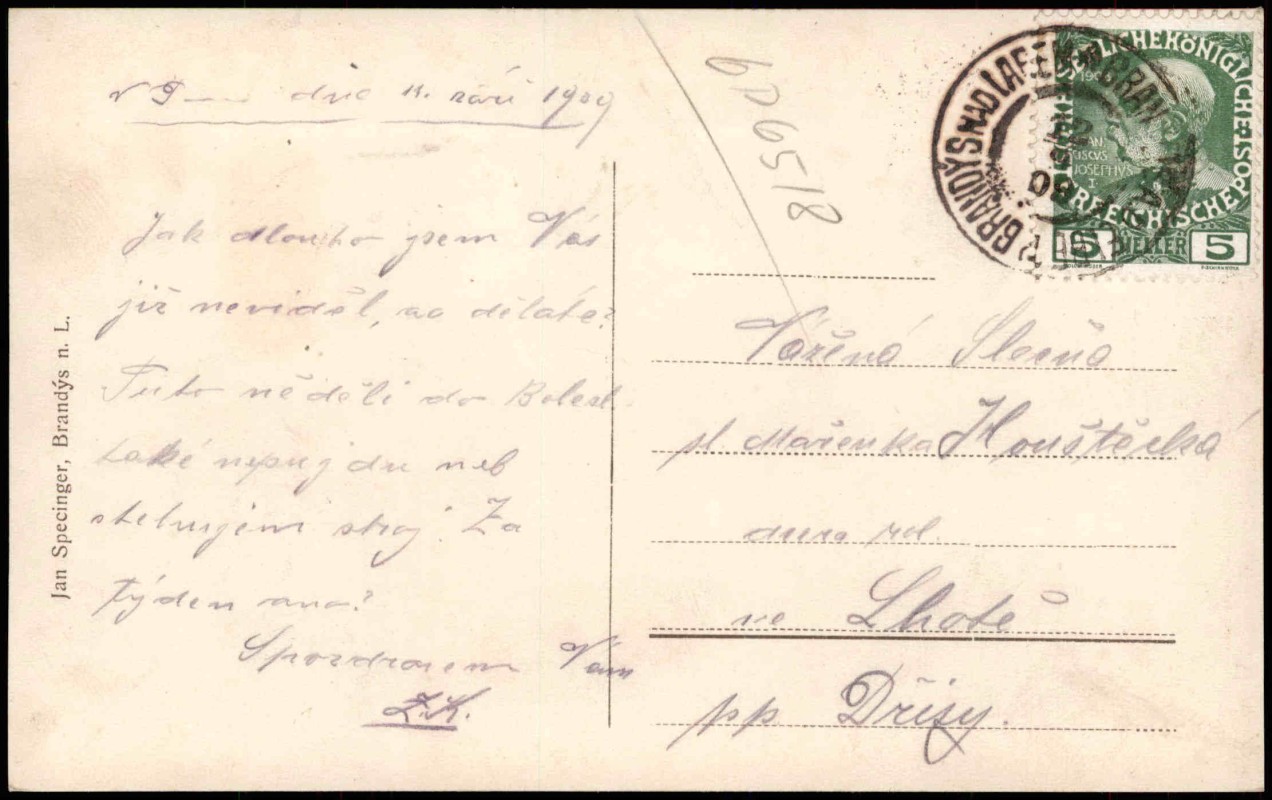 dne 11. září 1909
Jak dlouho jsem Vás
již neviděl, co děláte?
Tuto neděli do Bolesl.
také nepujdu neb
stehujem stroj. Za
týden ano?
S pozdravem Vám
Z.K.
Jan Specinger, Brandýs n. L.
60658
BRANDÝS NAD LABEM
KAISERLICHE KÖNIGLICHE
ÖSTERREICHISCHE POST
1908
JOSEPHVS
I
5 HELLER 5
Vážená Slečna
sl. Mařenka Houštěcká
ve Lhotě
pp Dřísy.